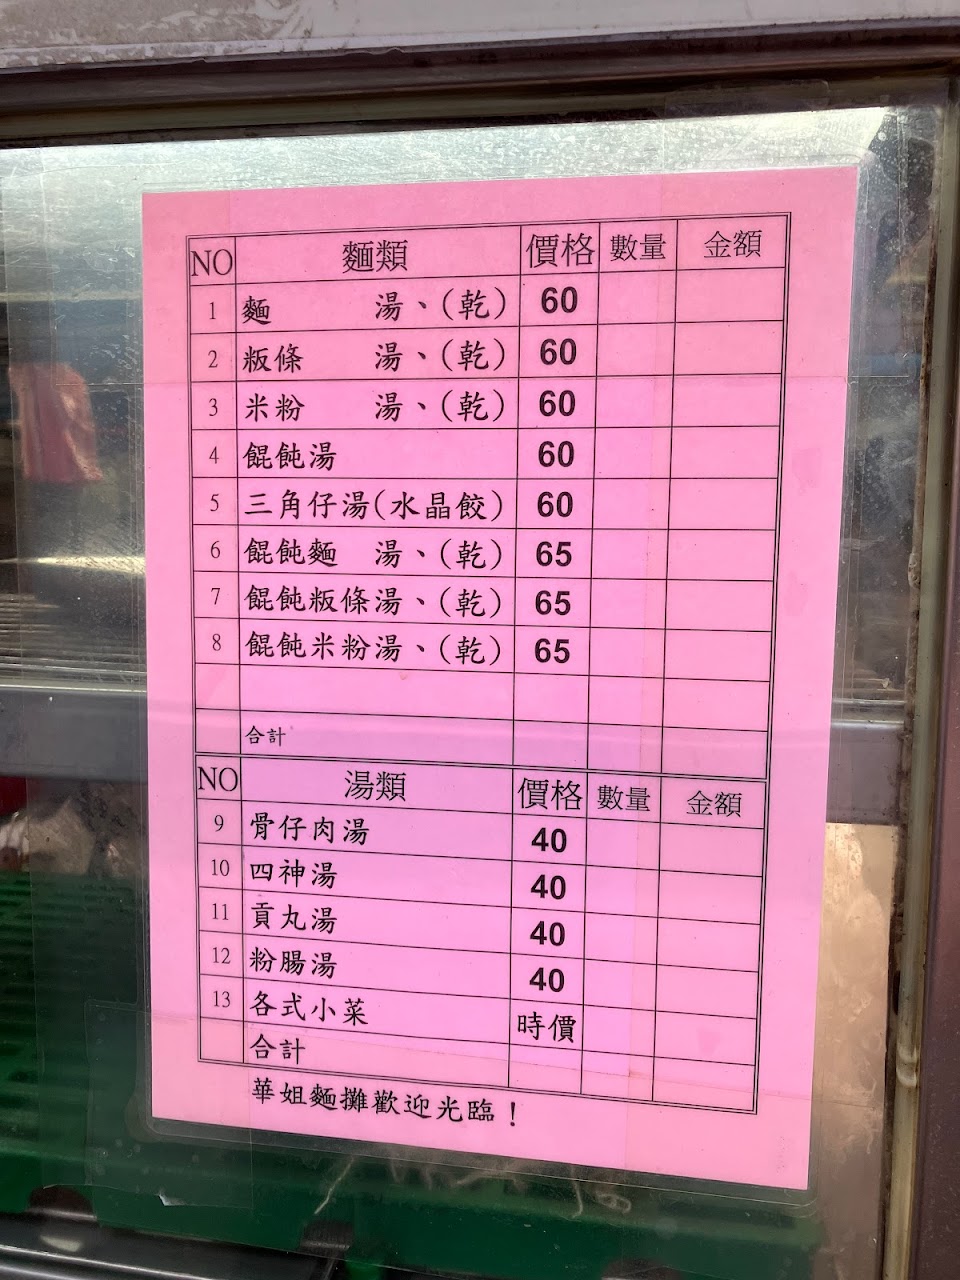 NO 麵類 價格 數量 金額
1 麵 湯、(乾) 60
2 粄條 湯、(乾) 60
3 米粉 湯、(乾) 60
4 餛飩湯 60
5 三角仔湯(水晶餃) 60
6 餛飩麵 湯、(乾) 65
7 餛飩粄條湯、(乾) 65
8 餛飩米粉湯、(乾) 65
合計
NO 湯類 價格 數量 金額
9 骨仔肉湯 40
10 四神湯 40
11 貢丸湯 40
12 粉腸湯 40
13 各式小菜 時價
合計
華姐麵攤歡迎光臨！